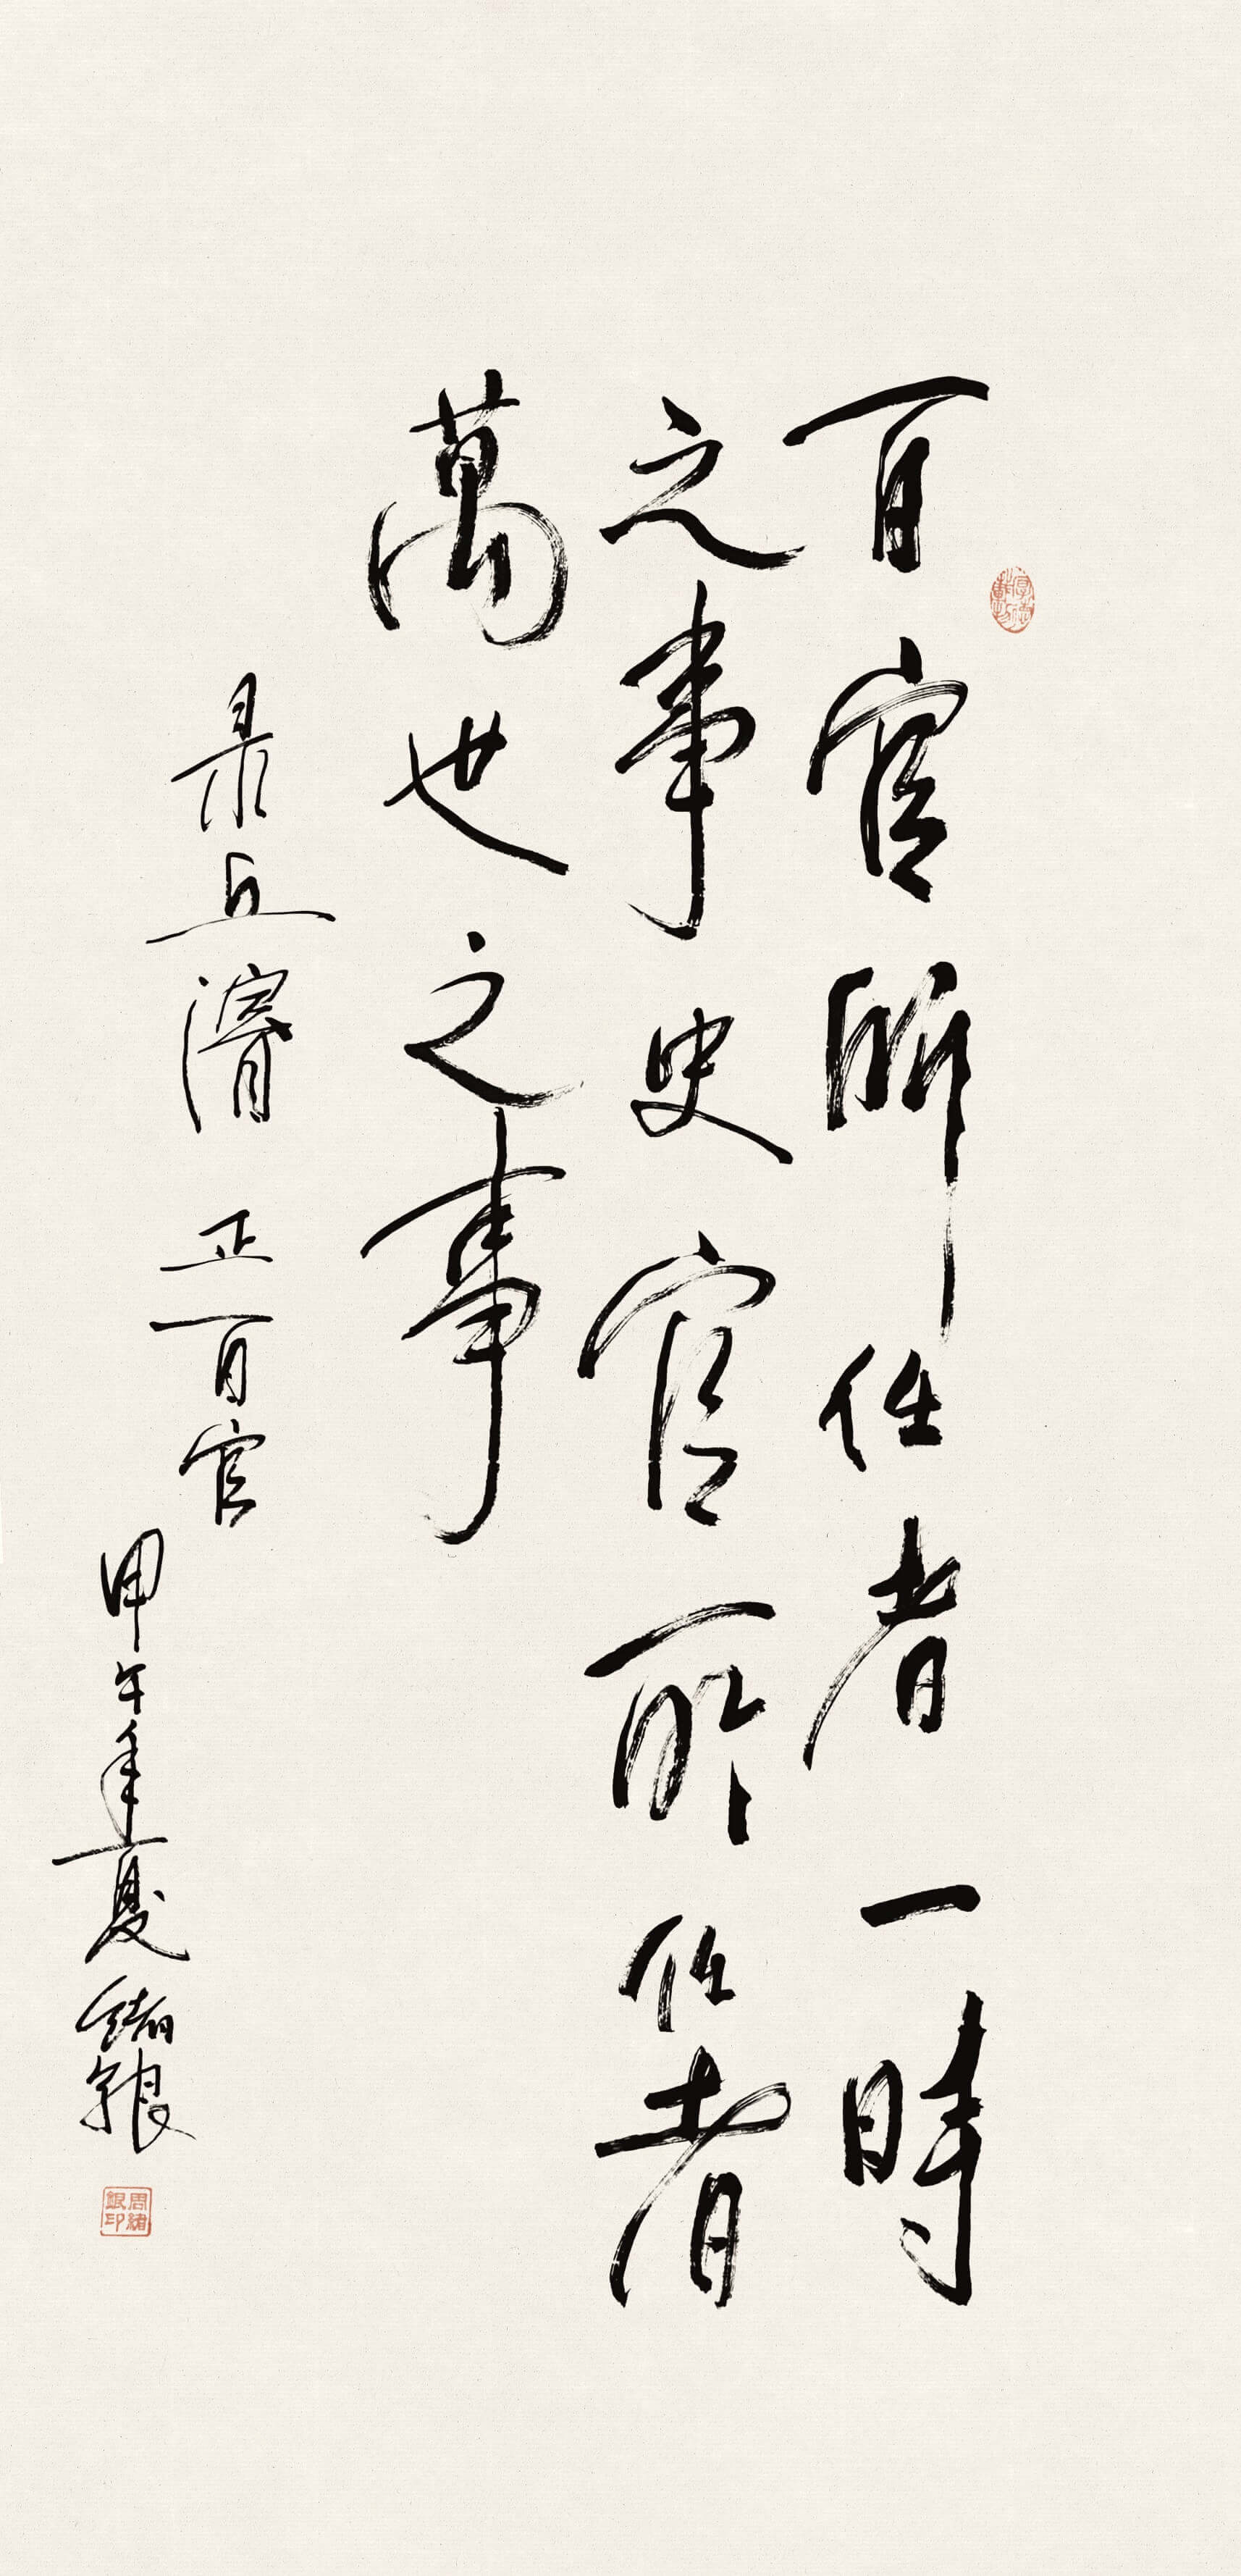 百官所任者一時
之事史官所任者
萬世之事
录丘濬 正百官
甲午年夏緒銀
厚德載物
周緒銀印